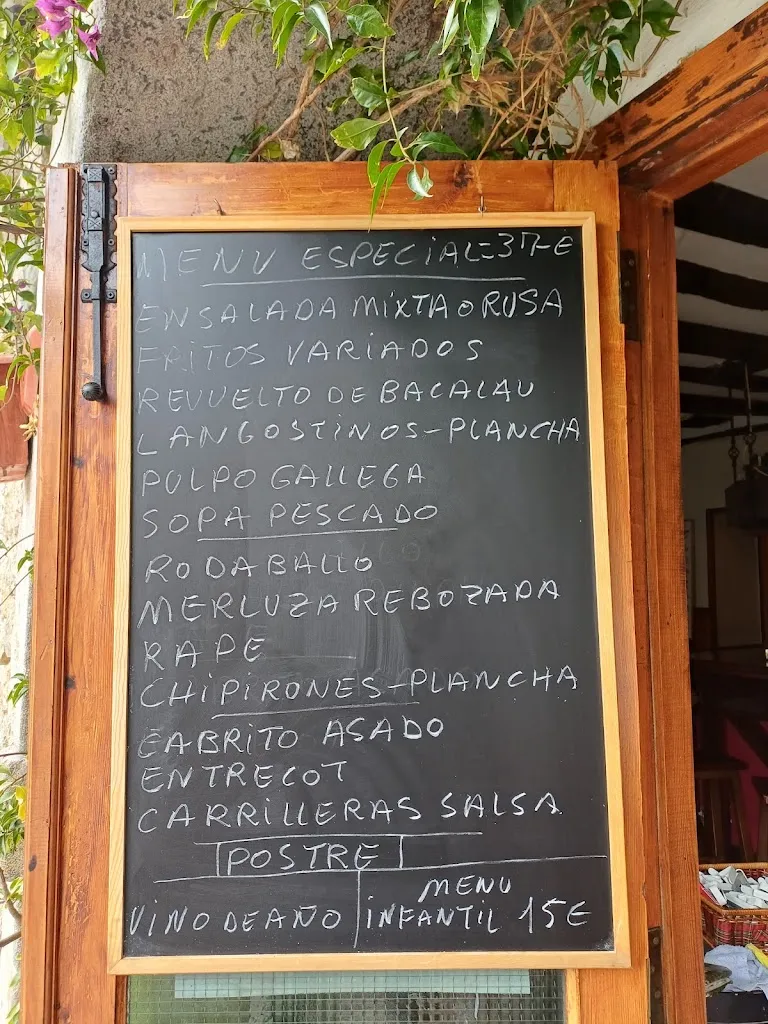 MENU ESPECIAL=37-€
ENSALADA MIXTA o RUSA
FRITOS VARIADOS
REVUELTO DE BACALAU
LANGOSTINOS-PLANCHA
PULPO GALLEGA
SOPA PESCADO
RODABALLO
MERLUZA REBOZADA
RAPE
CHIPIRONES-PLANCHA
CABRITO ASADO
ENTRECOT
CARRILLERAS SALSA
POSTRE
VINO DE AÑO
MENU
INFANTIL 15€